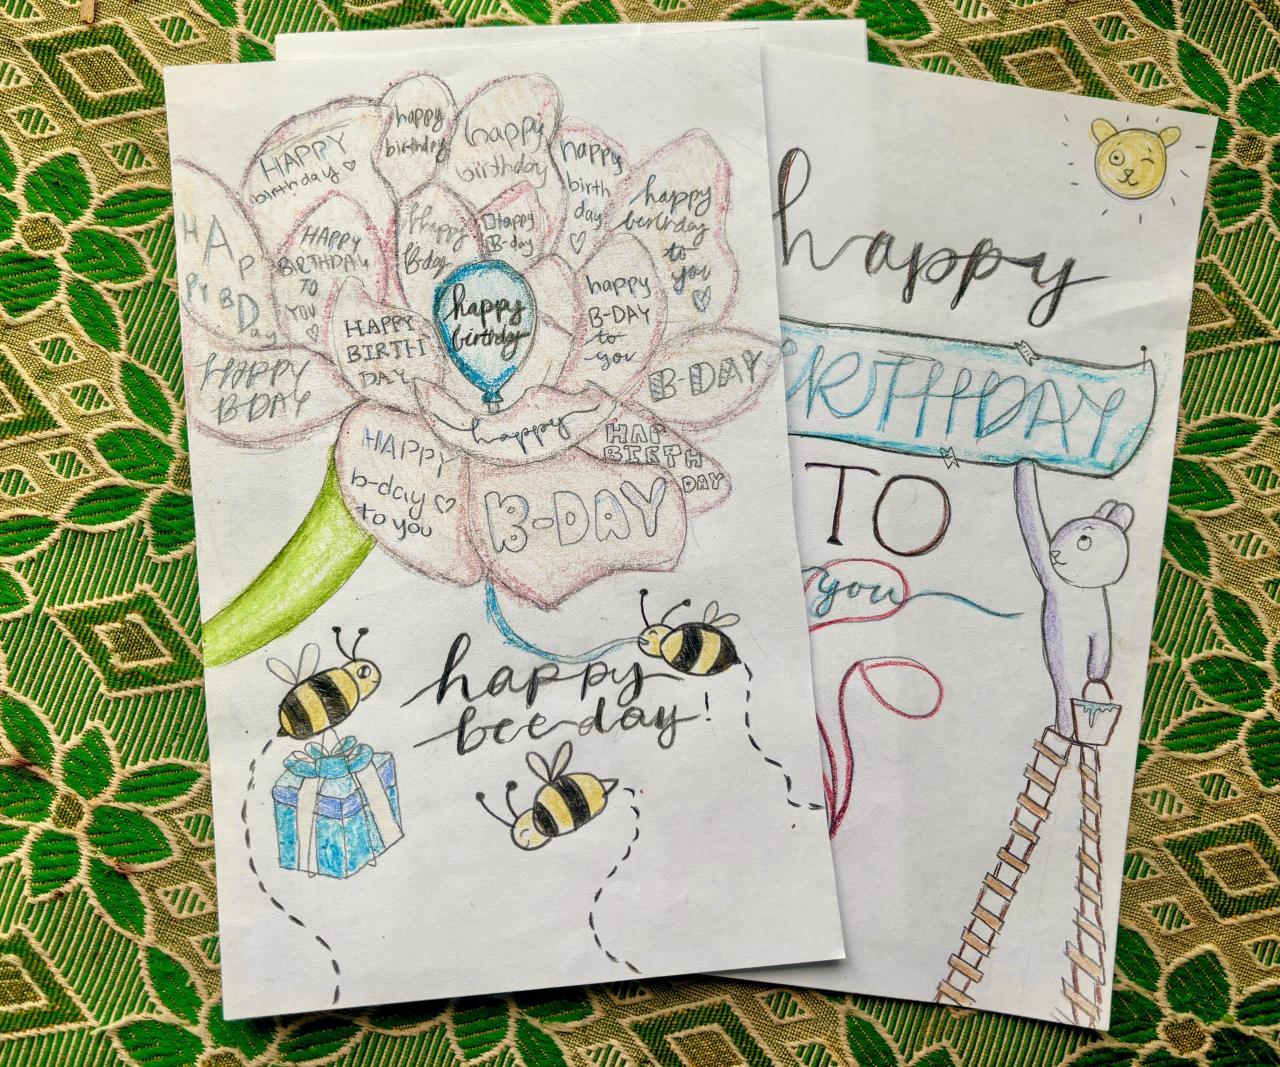 HAPPY
birthday
happy
birthday
happy
birthday
happy
birth
day
happy
birthday
to
you
HA
P
PY BD
ay
HAPPY
BIRTHDAY
TO
YOU
happy
B-day
Happy
B-day
happy
birthday
happy
B-DAY
to
you
HAPPY
BIRTH
DAY
HAPPY
B-DAY
B-DAY
happy
HAP
BIRTH
DAY
HAPPY
b-day
to you
B-DAY
happy
bee-day!
happy
IRTHDAY
TO
you